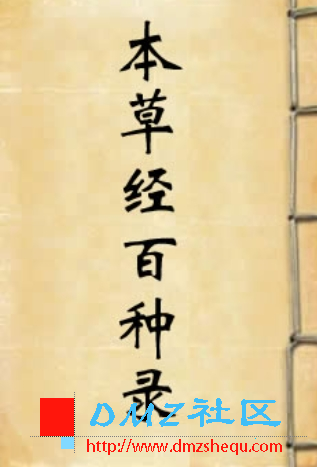 本草经百种录
DMZ社区
http://www.dmzshequ.com